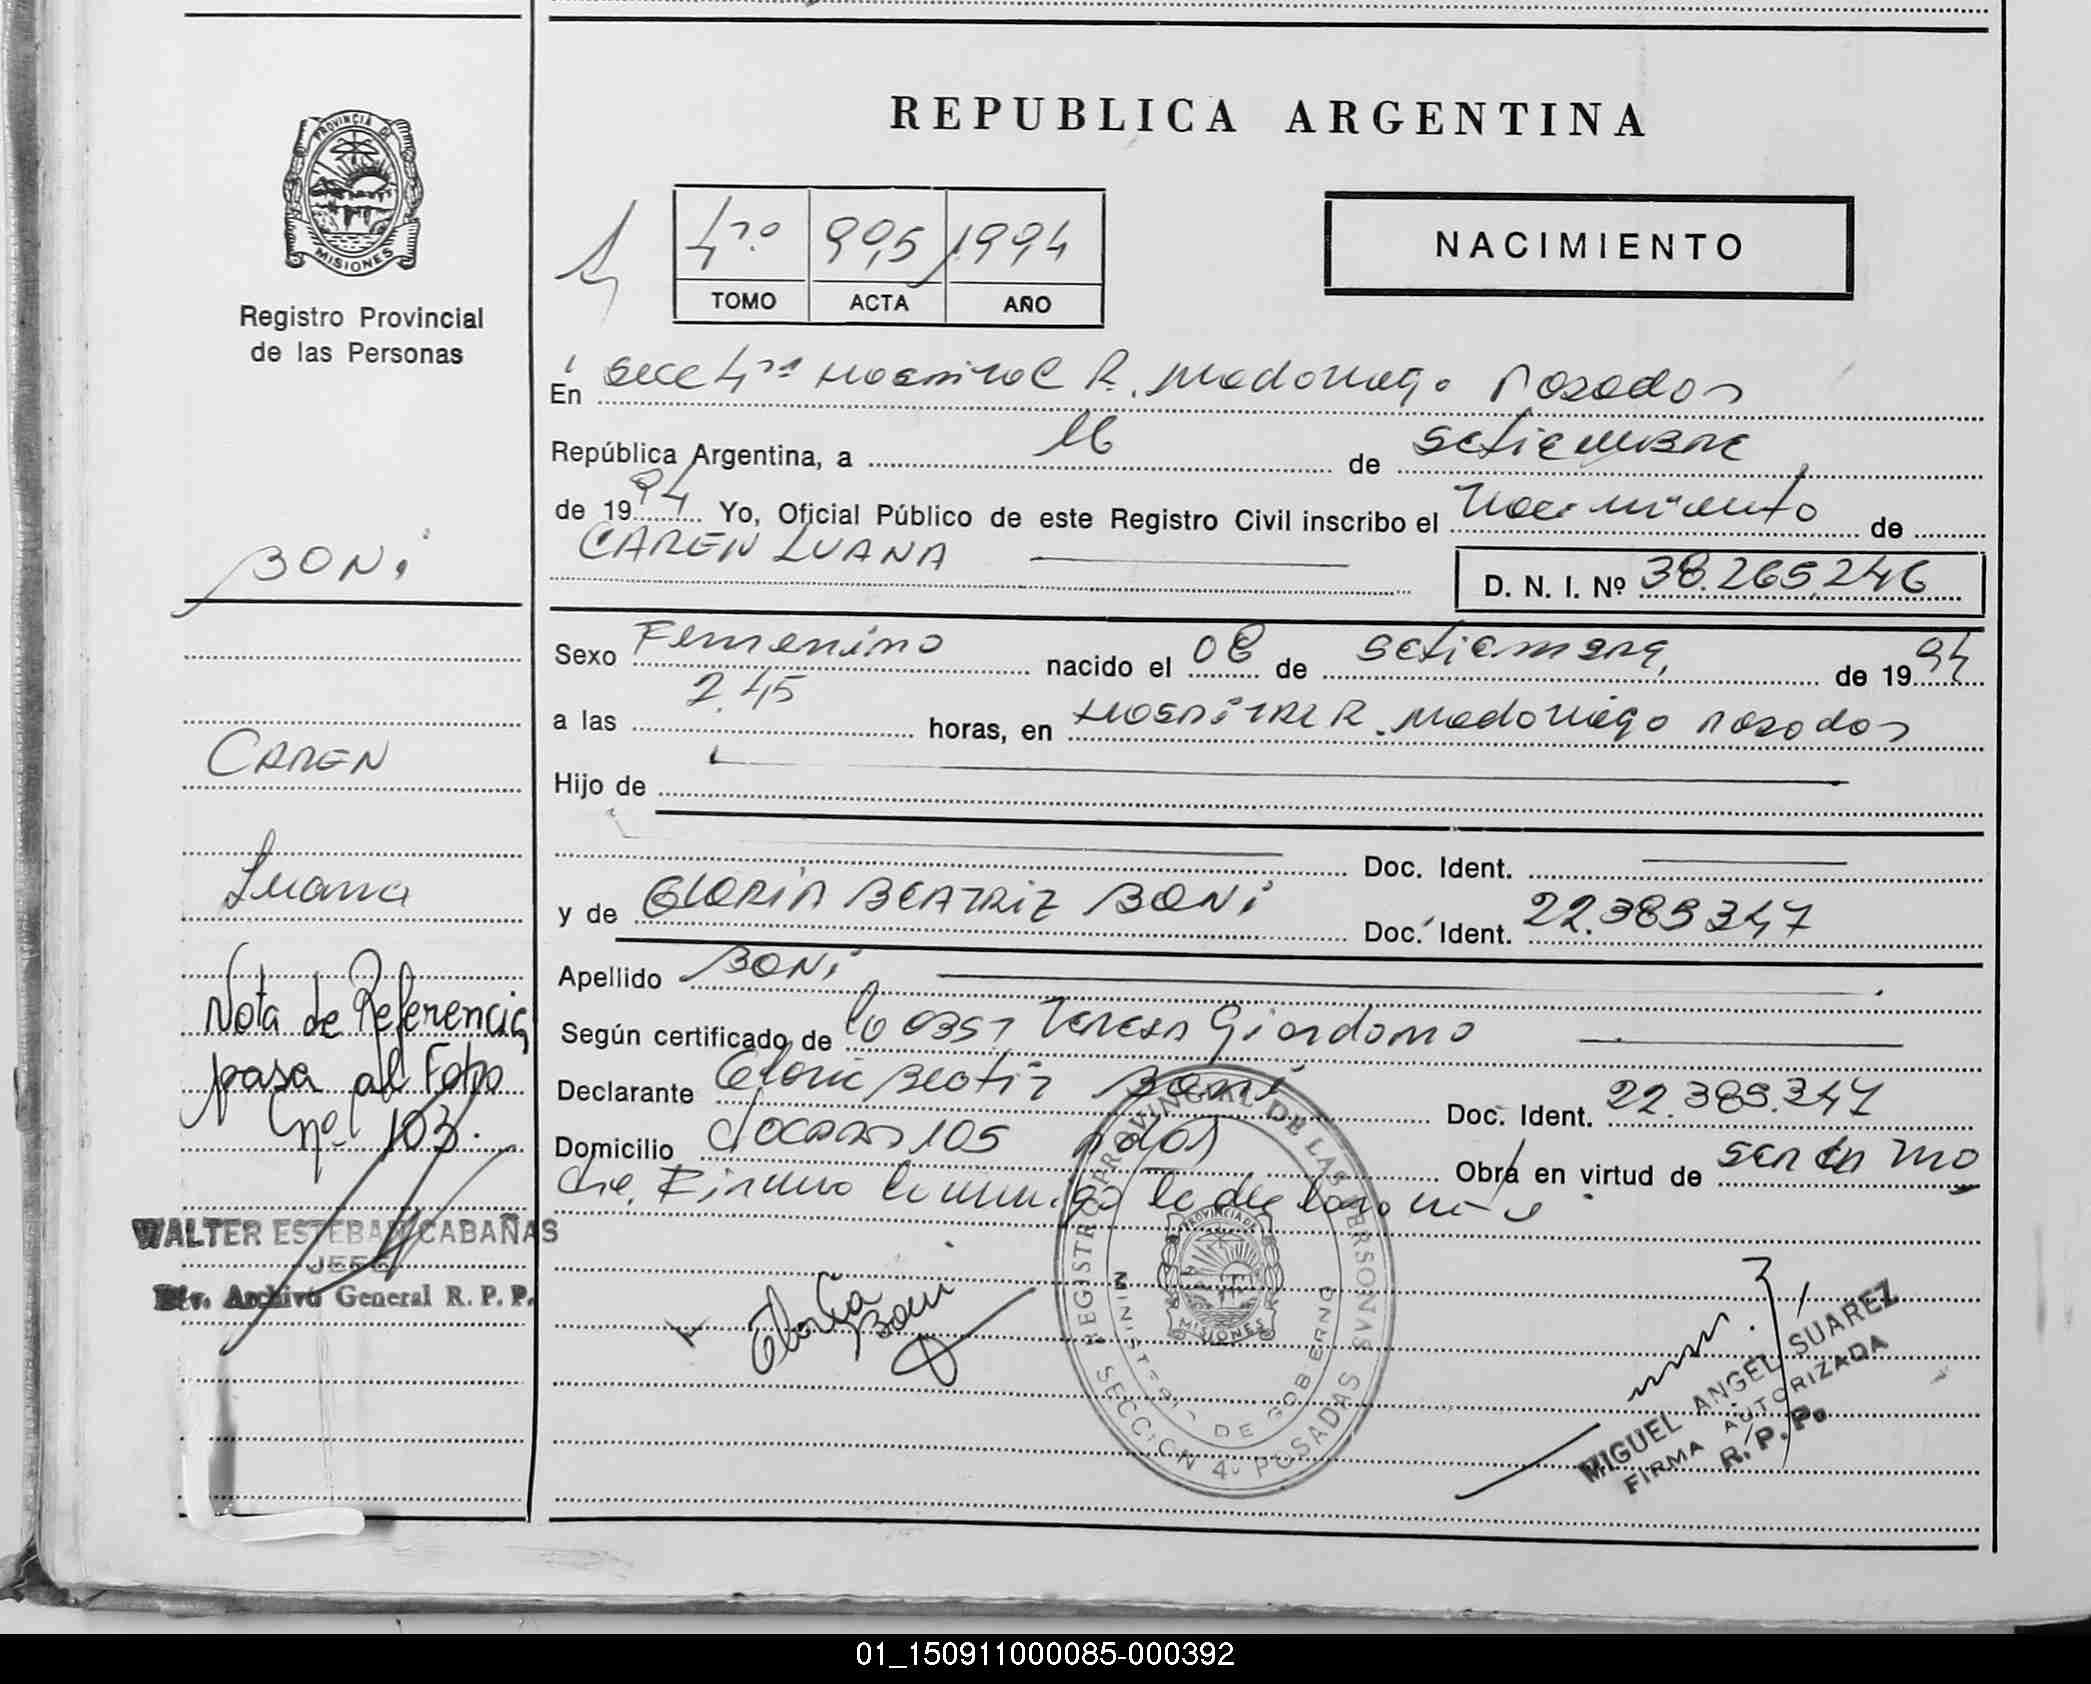 REPUBLICA ARGENTINA
PROVINCIA DE
MISIONES
Registro Provincial
de las Personas
4to 995 1994
TOMO ACTA AÑO
NACIMIENTO
En Secc 4ta Hospital R. Madariaga Posadas
República Argentina, a 16 de Setiembre
de 1994 Yo, Oficial Público de este Registro Civil inscribo el Nacimiento de
CAREN LUANA
D. N. I. Nº 38.265.246
BONi
Sexo Femenino nacido el 08 de Setiembre, de 1994
a las 2.45 horas, en Hospital R. Madariaga Posadas
CAREN
Hijo de
Doc. Ident.
Luana
y de GLORIA BEATRIZ BONi Doc. Ident. 22.383347
Apellido BONi
Nota de Referencia
pasa al Folio
nº 103.
Según certificado de Teresa Giordano
Declarante Gloria Beatriz Boni Doc. Ident. 22.383.347
Domicilio 105 Pdas Obra en virtud de ser la ma
dre. Firma conmigo la declarante
WALTER ESTEBAN CABAÑAS
JEFE
Div. Archivo General R. P. P.
Gloria
Boni
REGISTRO PROVINCIAL DE LAS PERSONAS
MINISTERIO DE GOBIERNO
PROVINCIA DE
MISIONES
SECCION 4a POSADAS
MIGUEL ANGEL SUAREZ
FIRMA AUTORIZADA
R. P. P.
01_150911000085-000392